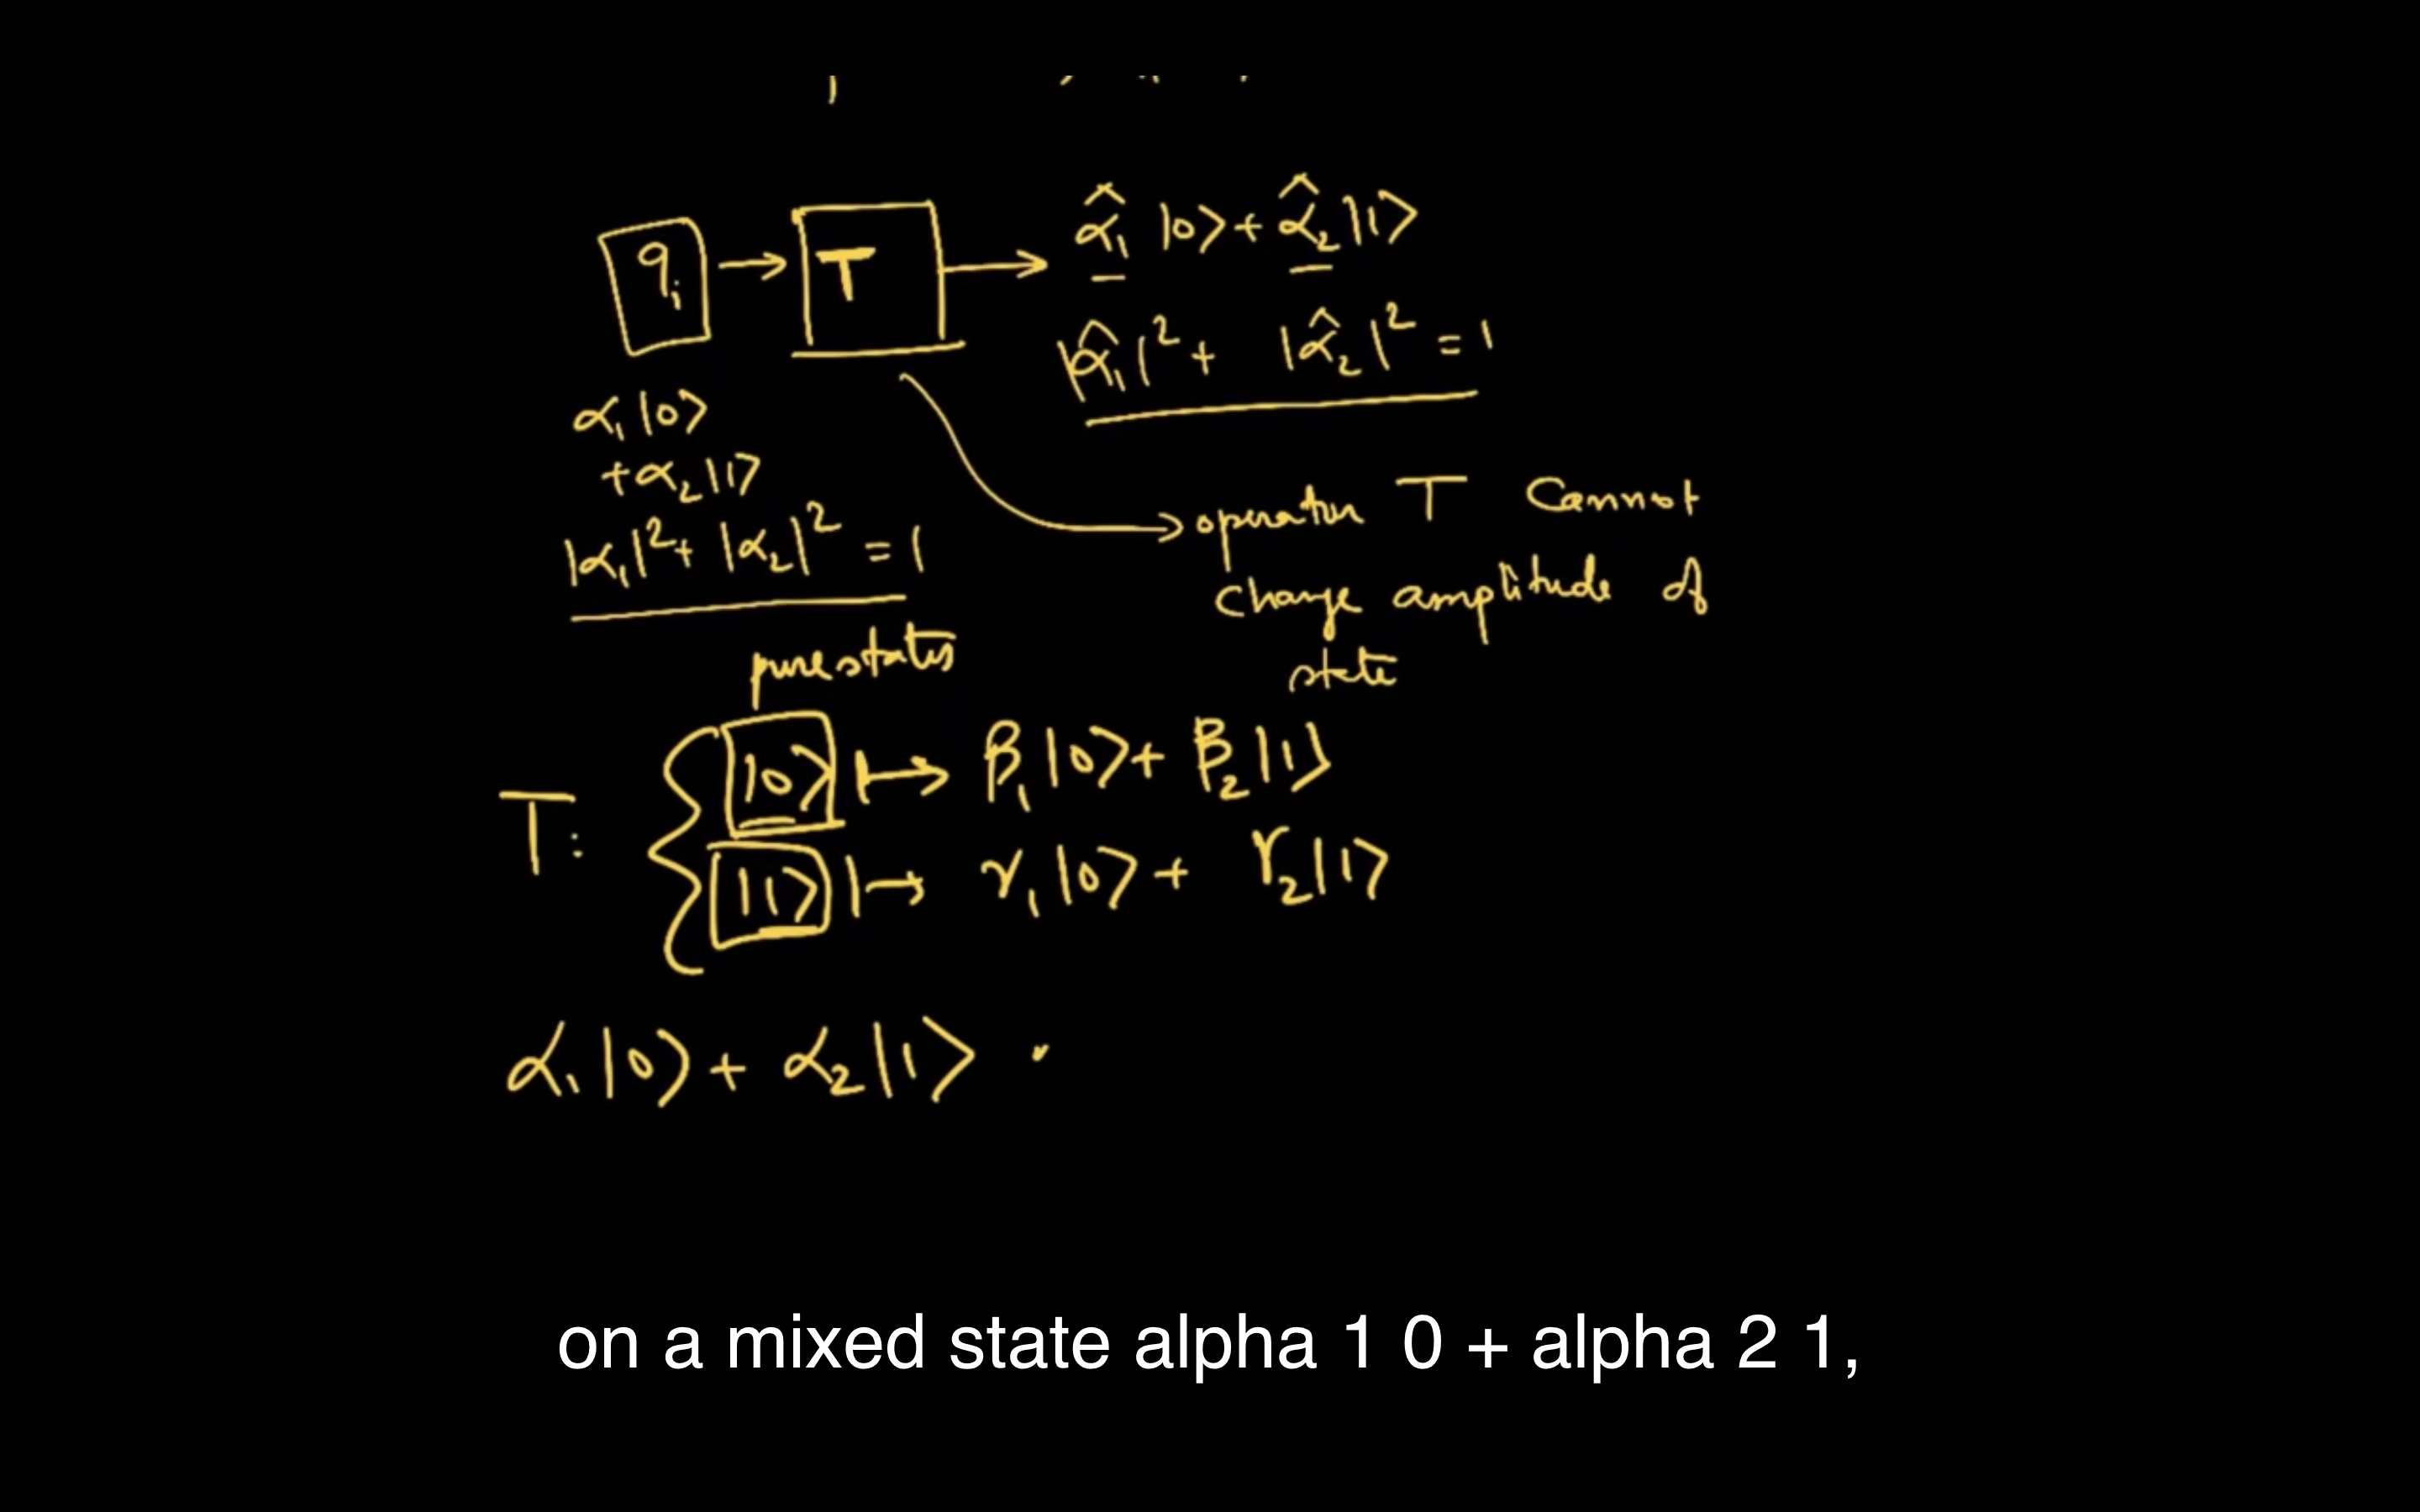 qᵢ → T → α̂₁ |0⟩ + α̂₂ |1⟩
|α̂₁|² + |α̂₂|² = 1
α₁ |0⟩
+ α₂ |1⟩
|α₁|² + |α₂|² = 1
operator T cannot
change amplitude of
state
pure states
T: { |0⟩ ↦ β₁ |0⟩ + β₂ |1⟩
|1⟩ ↦ γ₁ |0⟩ + γ₂ |1⟩
α₁ |0⟩ + α₂ |1⟩
on a mixed state alpha 1 0 + alpha 2 1,